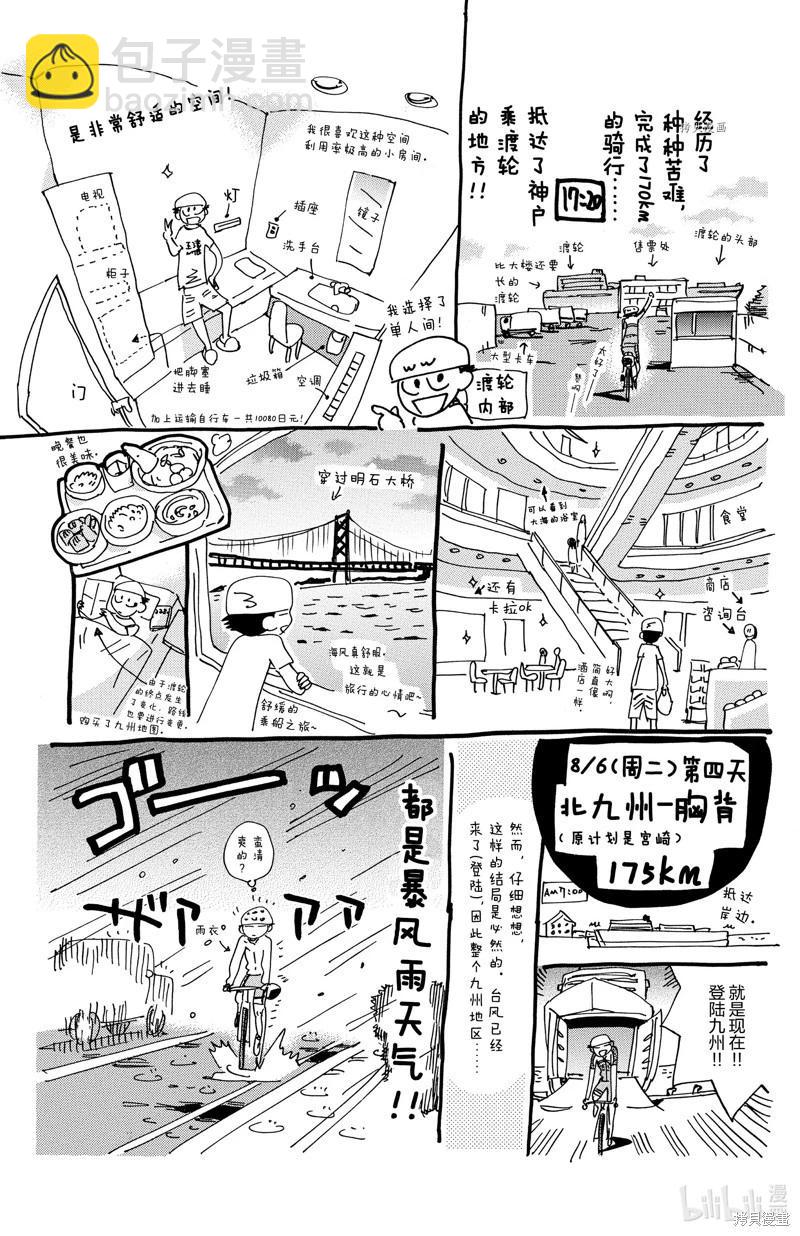 包子漫畫
baozimh.com
经历了
种种苦难,
完成了170km
的骑行……
17:20
抵达了神户
乘渡轮
的地方!!
渡轮的头部
售票处
渡轮
比大楼还要
长的
渡轮
大型卡车
太好了
是非常舒适的空间!
我很喜欢这种空间
利用率极高的小房间。
电视
灯
插座
镜子
洗手台
柜子
我选择了
单人间!
门
把脚塞
进去睡
垃圾箱
空调
渡轮
内部
加上运输自行车一共10080日元!
可以看到
大海的浴室
食堂
商店
咨询台
还有
卡拉ok
好大啊,
简直像
酒店一样。
穿过明石大桥
海风真舒服。
这就是
旅行的心情吧~
舒缓的
乘船之旅~
晚餐也
很美味。
由于渡轮
的终点发生
了变化,路线
也要进行变更,
购买了九州地图。
8/6(周二)第四天
北九州—胸背
(原计划是宫崎)
175km
AM7:00
抵达
岸边。
就是现在!!
登陆九州!!
然而,仔细想想,
这样的结局是必然的。台风已经
来了(登陆),因此整个九州地区……
都是暴风雨天气!!
ゴーッ
ザァァァ
蛮清
爽的?
雨衣
bilibili漫画
拷贝漫畫